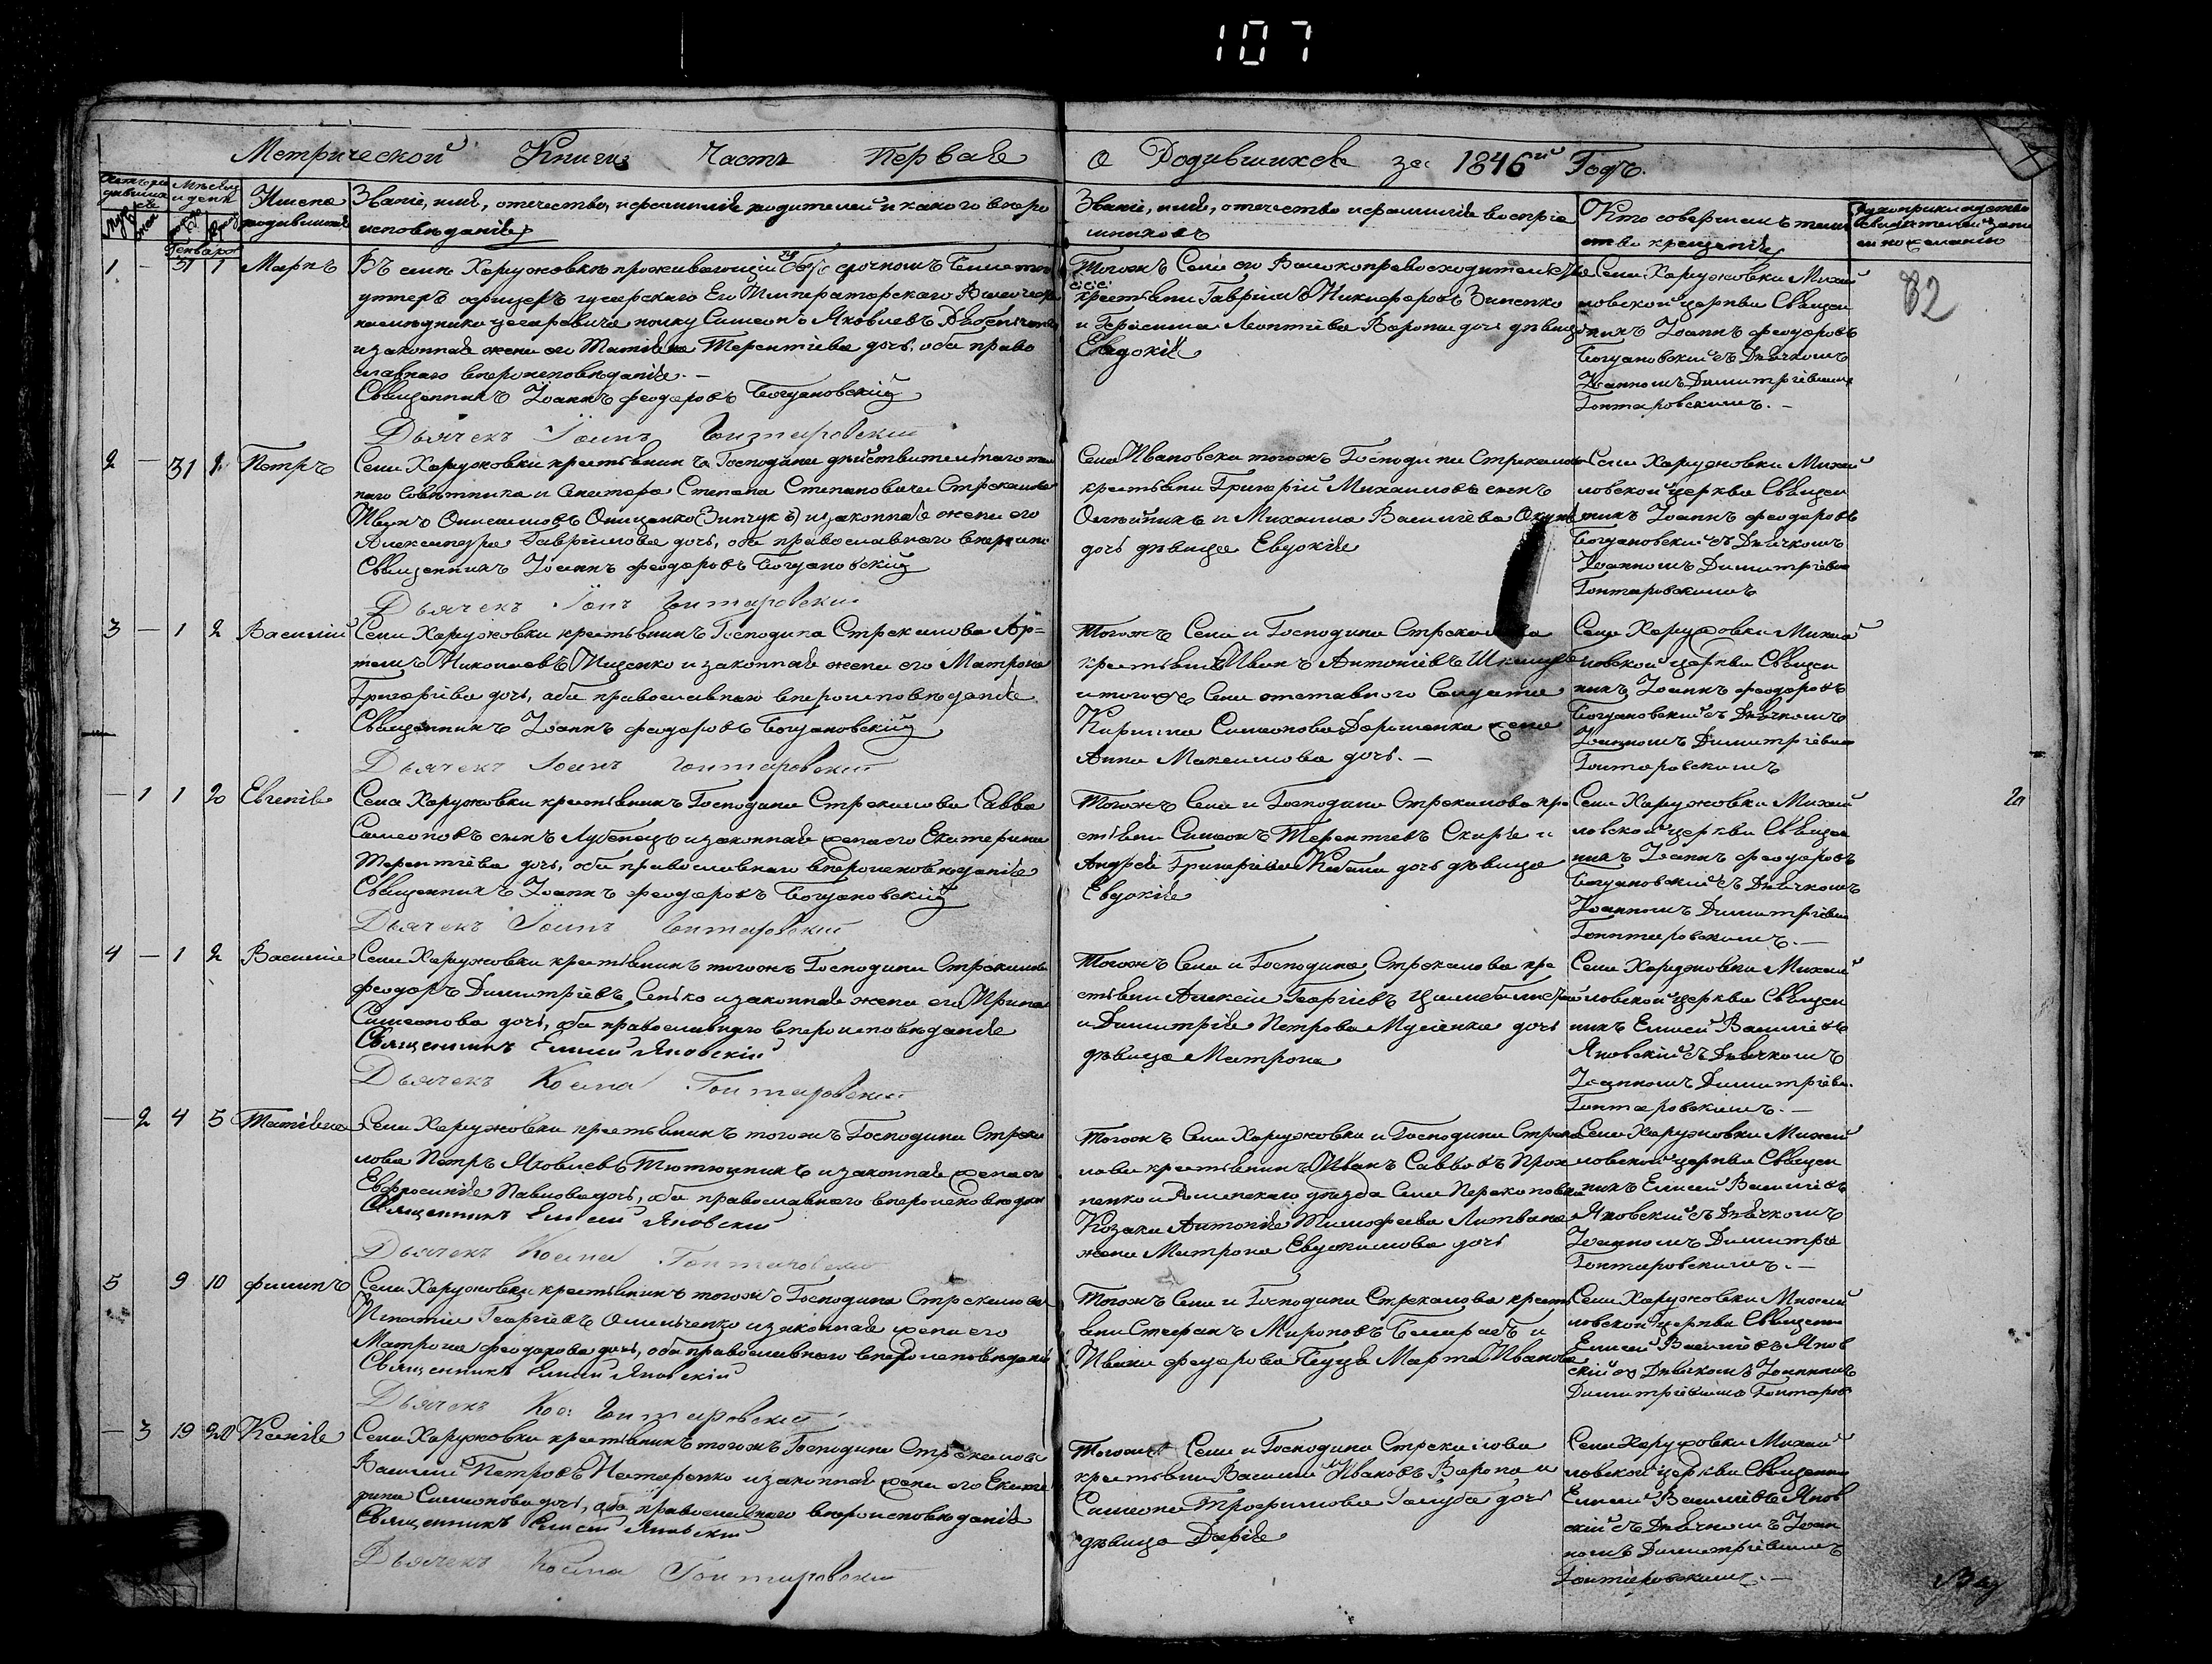 107
Метрической Книги Часть Первая о Родившихся за 1846й Годъ.
Имена родившихся
Званіе, имя, отечество, и фамилія родителей и какого вѣро
исповѣданія
Званіе, имя, отечество и фамилія воспріе
мниковъ
Кто совершилъ таин
ство крещенія
Генварь
82
1 — 31 1 Маркъ
Въ селѣ Харужовкѣ проживающій срочномъ
унтеръ офицеръ гусарскаго Его Императорскаго
наслѣдника цесаревича полку Симеонъ Яковлевъ
и законная жена его Татіана Терентіева дочь, оба право
славнаго вѣроисповѣданія. —
Священникъ Іоаннъ Феодоровъ Богдановскій
Дьячекъ Іоанъ Гонтаровскій
Тогожъ Села его Высокопревосходительства
крестьяне Гавріилъ Никифоровъ Зиненко
и Герасима Леонтіева Ворони дочь дѣвица
Евдокія
Села Харужовки Михай
ловской церкви Священ
никъ Іоаннъ Феодоровъ
Богдановскій съ Дьячкомъ
Іоанномъ Димитріевымъ
Гонтаровскимъ. —
2 — 31 1 Петръ
Села Харужовки крестьянинъ Господина дѣйствительнаго тай
наго Совѣтника и Сенатора Степана Степановича Стрекалова
Иванъ Онисимовъ Онищенко (Зинчукъ) и законная жена его
Александра Гавріилова дочь, оба православнаго
Священникъ Іоаннъ Феодоровъ Богдановскій
Дьячекъ Іоанъ Гонтаровскій
Села Ивановска тогожъ Господина Стрекалова
крестьяне Григорій Михаиловъ сынъ
Олейникъ и Михаила Василіева
дочь дѣвица Евдокія
Села Харужовки Михай
ловской церкви Священ
никъ Іоаннъ Феодоровъ
Богдановскій съ Дьячкомъ
Іоанномъ Димитріевы
Гонтаровскимъ
3 — 1 2 Василій
Села Харужовки крестьянинъ Господина Стрекалова Ар=
темъ Николаевъ Ищенко и законная жена его Матрона
Григоріева дочь, оба православнаго вѣроисповѣданія
Священникъ Іоаннъ Феодоровъ Богдановскій
Дьячекъ Іоанъ Гонтаровскій
Тогожъ Села и Господина Стрекалова
крестьянинъ Иванъ Антоніевъ
и тогоже Села отставного Солдата
Кирилла Симеонова Дорошенка жена
Анна Максимова дочь. —
Села Харужовки Михай
ловской церкви Священ
никъ Іоаннъ Феодоровъ
Богдановскій съ Дьячкомъ
Іоанномъ Димитріевы
Гонтаровскимъ
— 1 1 20 Евгенія
Села Харужовки крестьянинъ Господина Стрекалова Савва
Симеоновъ сынъ Лубенецъ и законная жена его Екатерина
Терентіева дочь, оба православнаго вѣроисповѣданія
Священникъ Іоаннъ Феодоровъ Богдановскій
Дьячекъ Іоанъ Гонтаровскій
Тогожъ Села и Господина Стрекалова кре
стьяне Симеонъ Терентіевъ Скирта и
Андрея Григоріева Кабана дочь дѣвица
Евдокія
Села Харужовки Михай
ловской церкви Священ
никъ Іоаннъ Феодоровъ
Богдановскій съ Дьячкомъ
Іоанномъ Димитріевы
Гонтаровскимъ. —
4 — 1 2 Василій
Села Харужовки крестьянинъ тогожъ Господина Стрекалова
Феодоръ Димитріевъ Сенько и законная жена его Ирина
Симеонова дочь, оба православнаго вѣроисповѣданія
Священникъ Елисей Яновскій
Дьячекъ Косма Гонтаровскій
Тогожъ Села и Господина Стрекалова кре
стьяне Алексій Георгіевъ
и Димитрія Петрова Мусіенка дочь
дѣвица Матрона
Села Харужовки Михай
ловской церкви Священ
никъ Елисей Василіевъ
Яновскій съ Дьячкомъ
Іоанномъ Димитріевы
Гонтаровскимъ. —
— 2 4 5 Татіана
Села Харужовки крестьянинъ тогожъ Господина Стрека
лова Петръ Яковлевъ Тютюнникъ и законная жена его
Евфросинія Павлова дочь, оба православнаго вѣроисповѣдан
Священникъ Елисей Яновскій
Дьячекъ Косма Гонтаровскій
Тогожъ Села Харужовки и Господина Стрека
лова крестьянинъ Иванъ Саввовъ Прох
ненко и Роменскаго уѣзда Села Перекоповки
Козака Антонія Тимофеева Литвина
жена Матрона Евдокимова дочь
Села Харужовки Михай
ловской церкви Священ
никъ Елисей Василіевъ
Яновскій съ Дьячкомъ
Іоанномъ Димитріе
Гонтаровскимъ. —
5 9 10 Филипъ
Села Харужовки крестьянинъ тогожъ Господина Стрекалова
Игнатій Георгіевъ Омельченко и законная жена его
Матрона Феодорова дочь, оба православнаго вѣроисповѣданія
Священникъ Елисей Яновскій
Дьячекъ Кос: Гонтаровскій
Тогожъ Села и Господина Стрекалова кресть
яне Стефанъ Мироновъ и
Ивана Федорова Марта Иванова
Села Харужовки Михай
ловской церкви Священни
Елисей Василіевъ Янов
скій съ Дьячкомъ Іоанномъ
Димитріевымъ Гонтаров
— 3 19 20 Ксенія
Села Харужовки крестьянинъ тогожъ Господина Стрекалова
Василій Петровъ Нестеренко и законная жена его Екате
рина Симеонова дочь, оба православнаго вѣроисповѣданія
Священникъ Елисей Яновскій
Дьячекъ Косма Гонтаровскій
Тогожъ Села и Господина Стрекалова
крестьяне Василій Ивановъ Ворона и
Симеона Трофимова Голуба дочь
дѣвица Дарія
Села Харужовки Михай
ловской церкви Священни
Елисей Василіевъ Янов
скій съ Дьячкомъ Іоан
номъ Димитріевымъ
Гонтаровскимъ. —